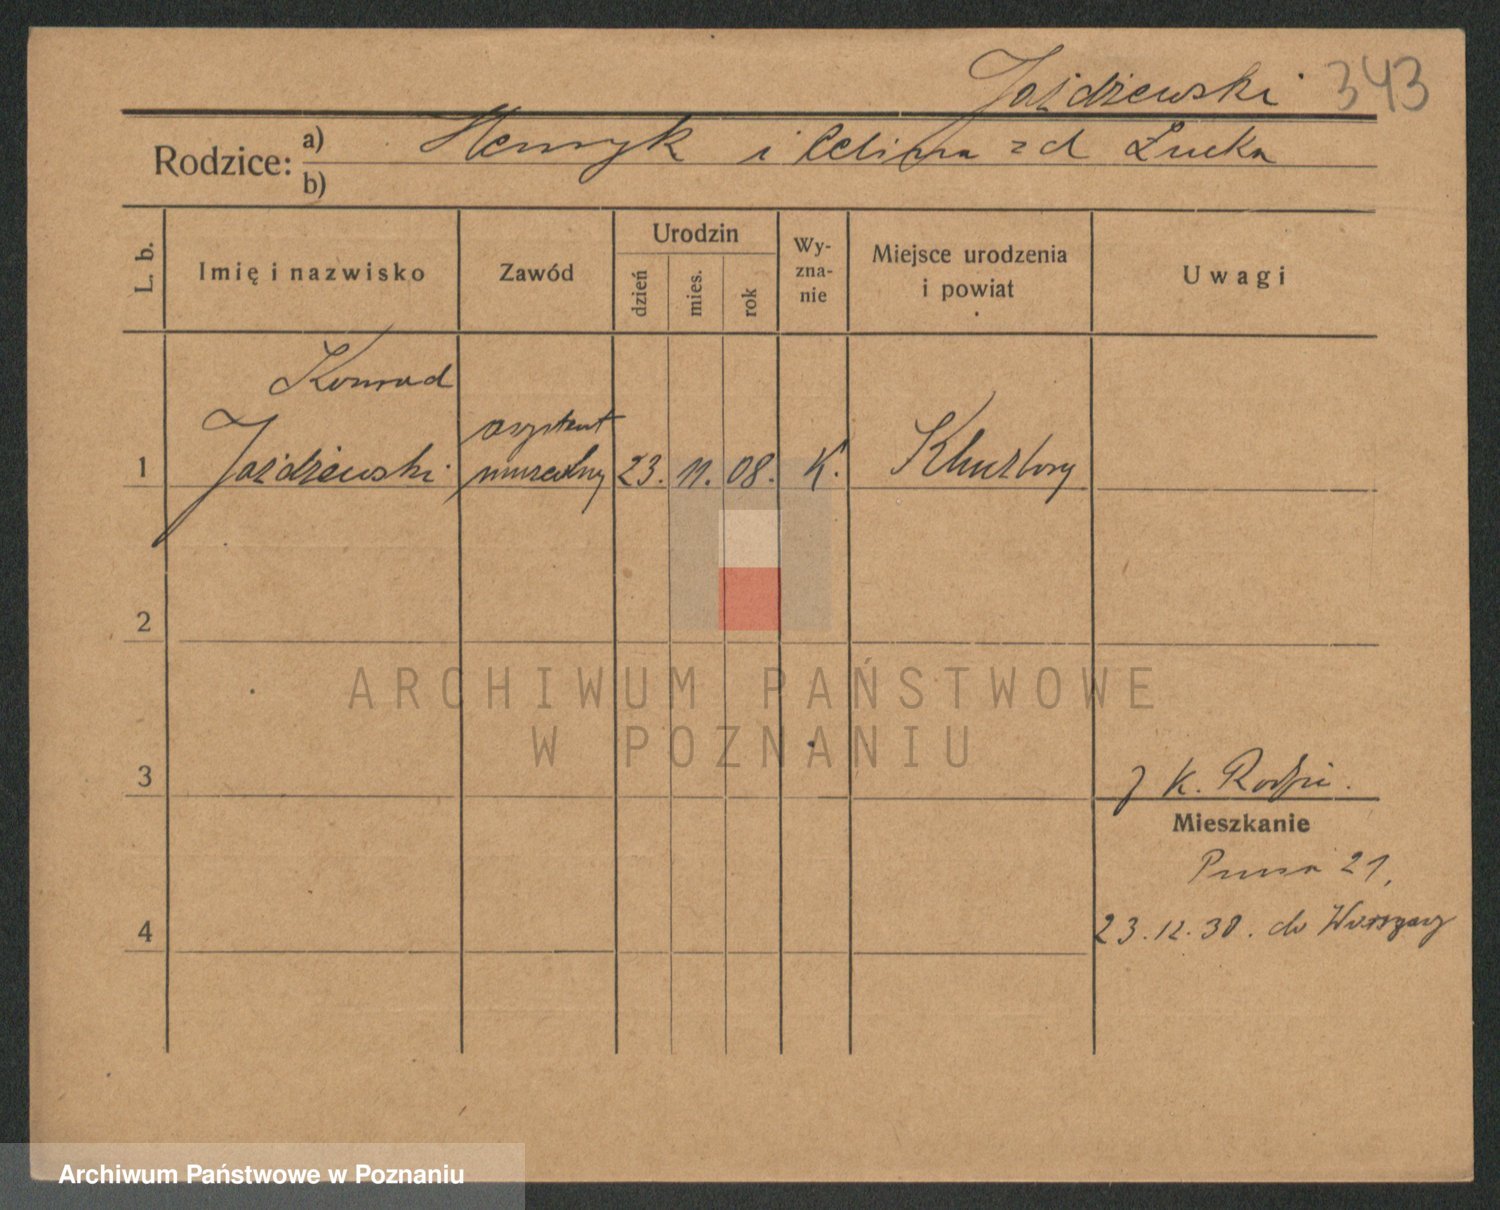 Jażdżewski 343
Rodzice: a) Henryk i Celina z d Łucka
b)
L. b.
Imię i nazwisko
Zawód
Urodzin
dzień
mies.
rok
Wy-
zna-
nie
Miejsce urodzenia
i powiat
Uwagi
Konrad
asystent
1 Jażdżewski muzealny 23. 11. 08. K. Kluczbory
2
ARCHIWUM PAŃSTWOWE
W POZNANIU
3
K.
Mieszkanie
21,
4 23.12.38. do Warszawy
Archiwum Państwowe w Poznaniu